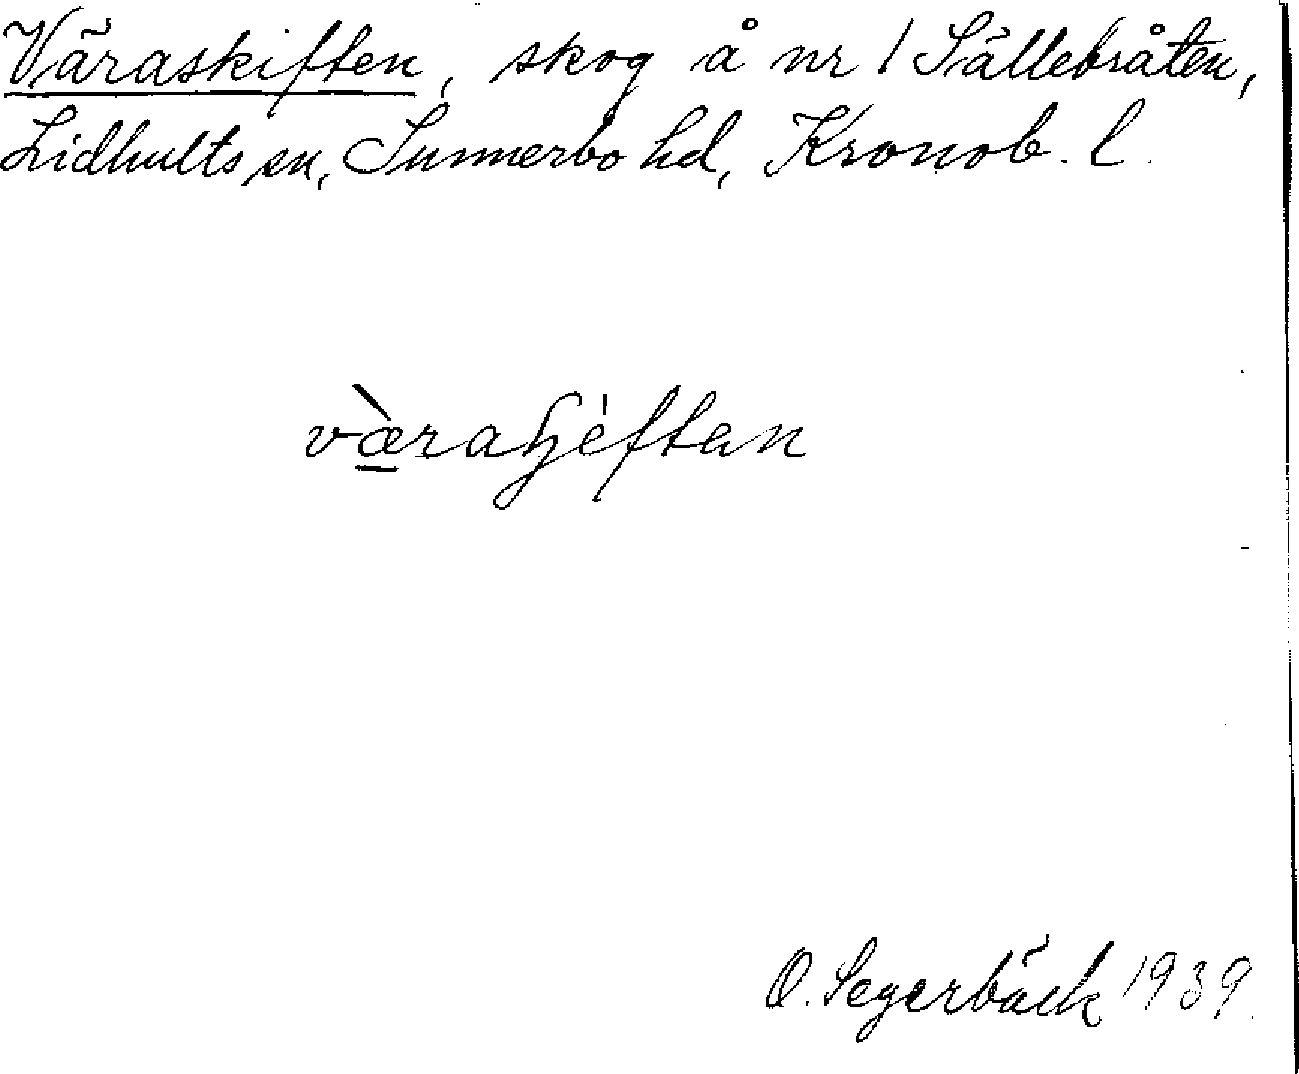 Väraskiften, skog å nr 1 Sällebråten,
Lidhults sn, Sunnerbo hd, Kronob. l.
væ̀raɧèften
O. Segerbäck 1939.